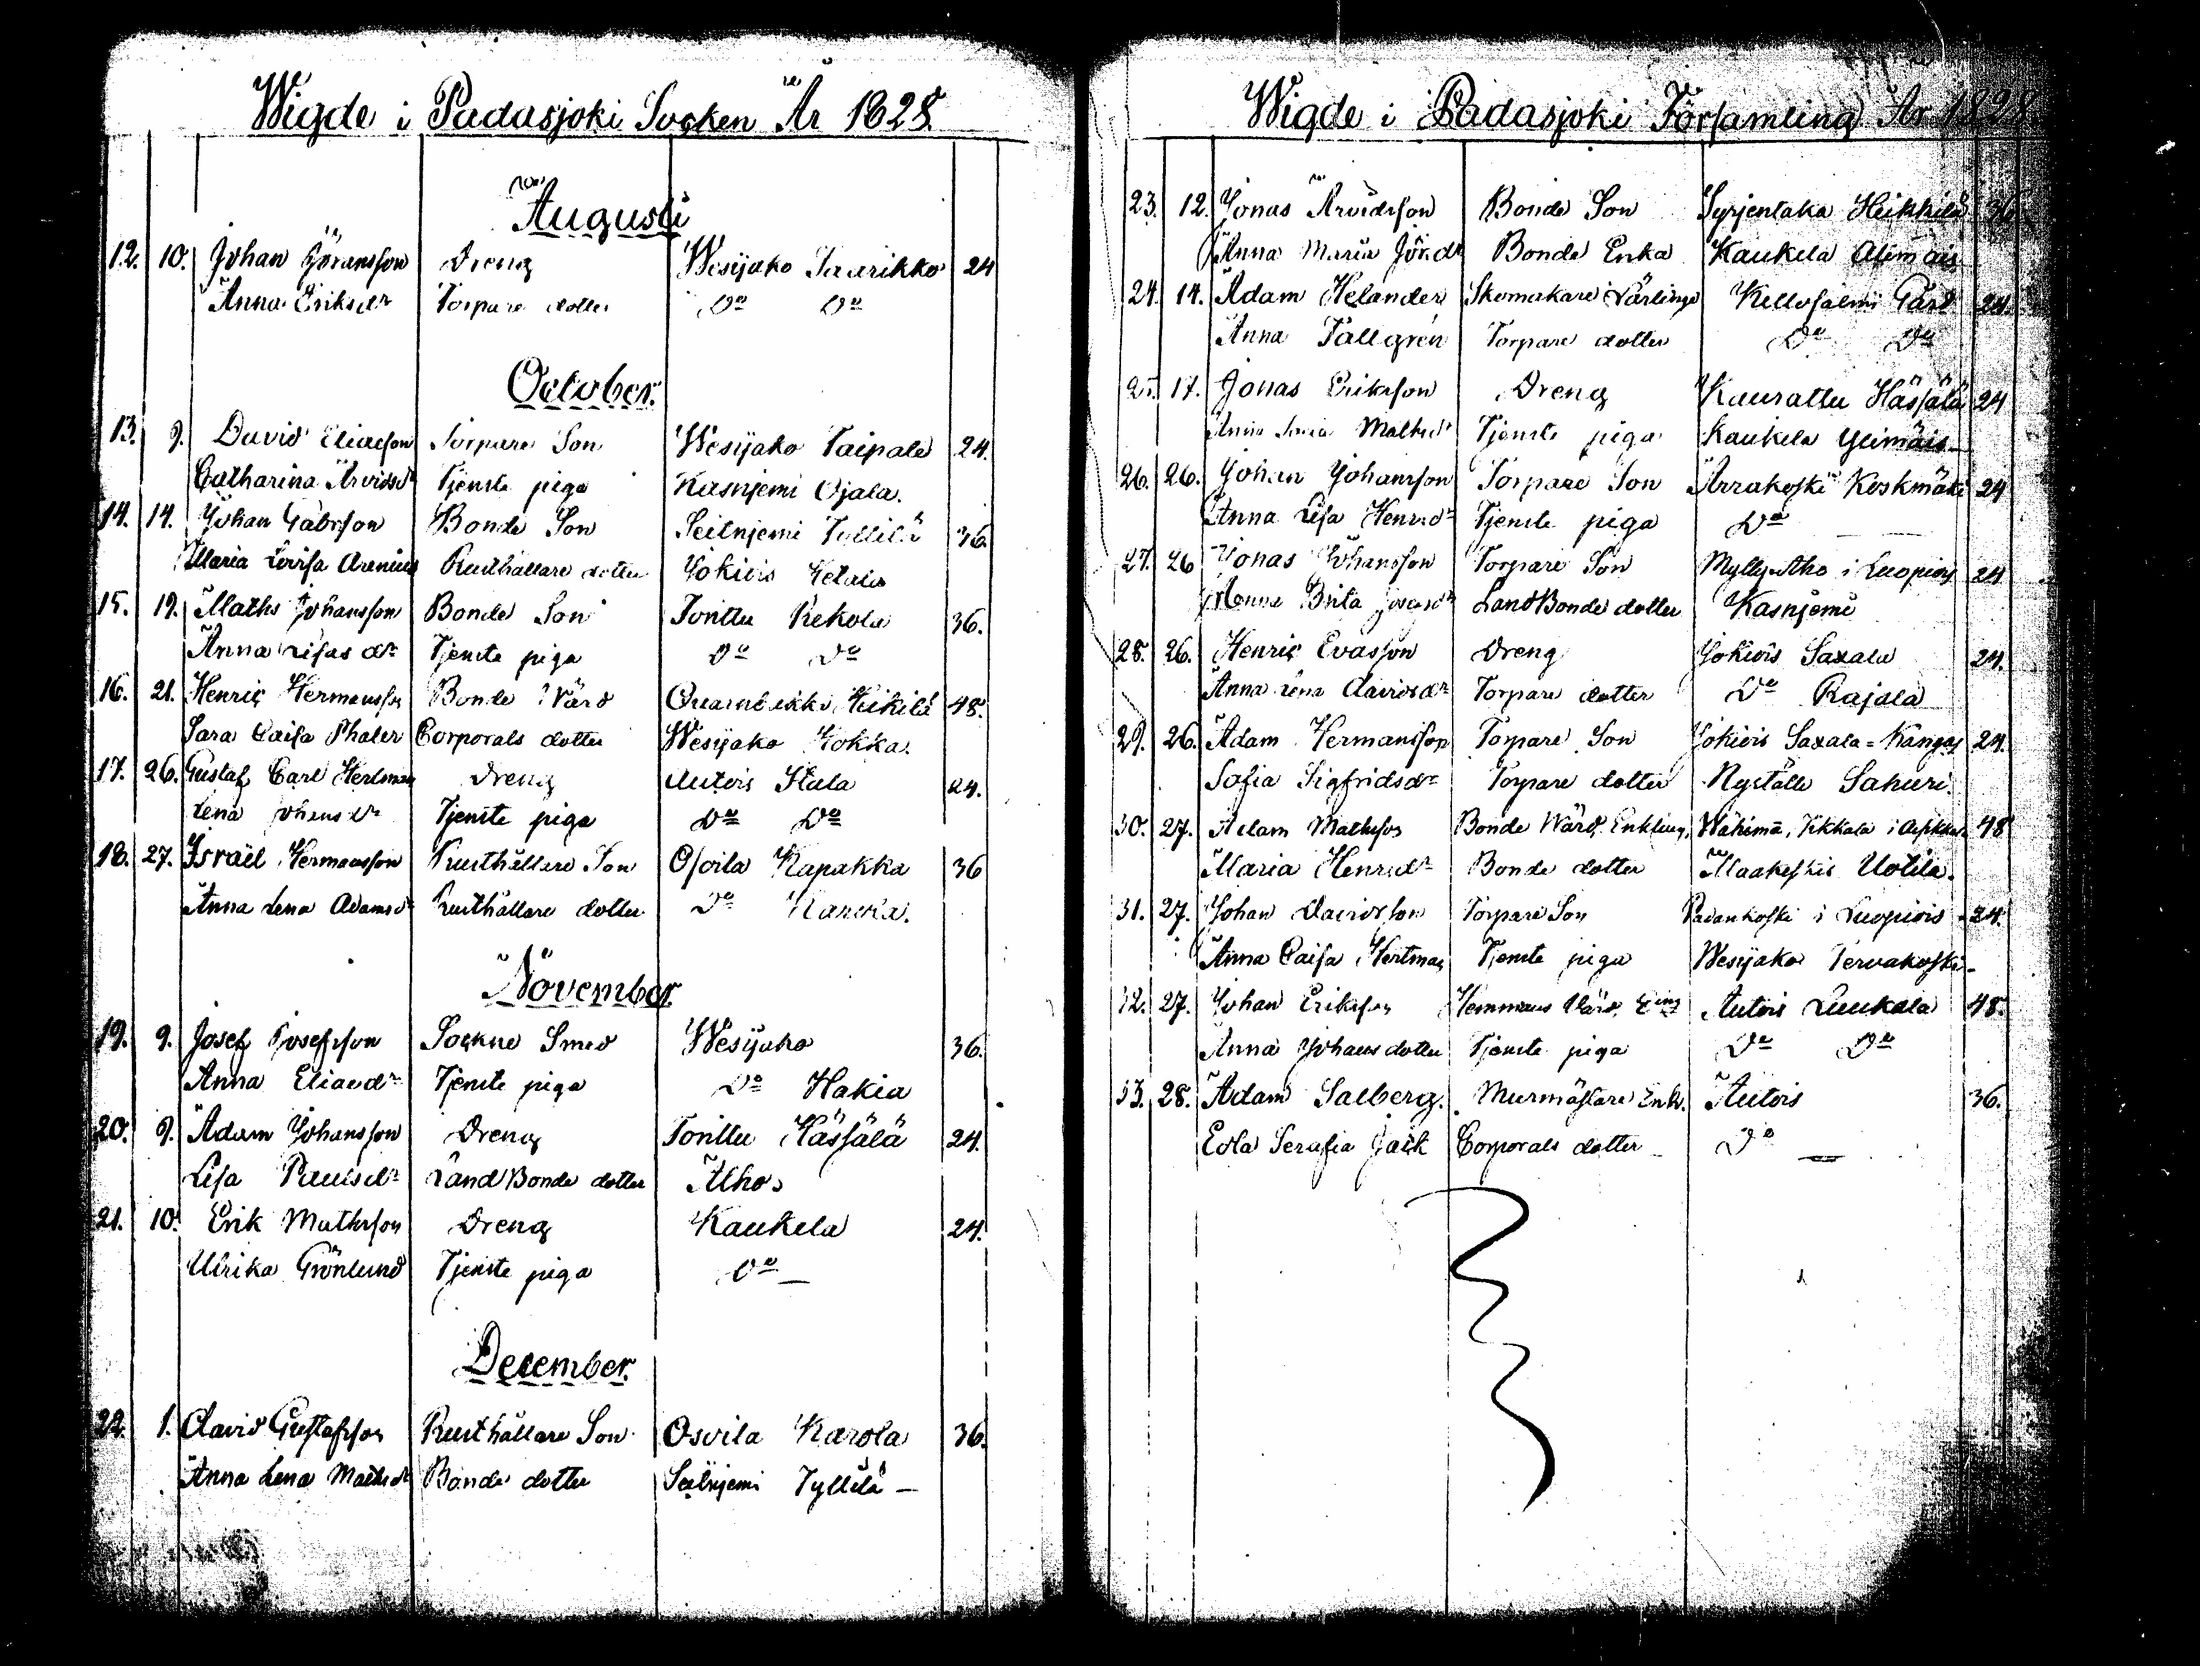 Wigde i Padasjoki Socken År 1828.
Augusti
12. 10. Johan Göransson Dreng Wesijako Taarikko 24
Anna Eriksdr Torpare dotter Do Do
October.
13. 9. David Eliasson Torpare Son Wesijako Taipale 24.
Catharina Arvidsdr Tjenste piga Kasnjemi Ojala.
14. 14. Johan Gabrsson Bonde Son Seitnjemi 36.
Maria Lovisa Arenius Rusthållare dotter Jokiois
15. 19. Maths Johansson Bonde Son Torittu Rekola 36.
Anna Lisas dr Tjenste piga Do Do
16. 21. Henric Hermansson Bonde Värd Heikilä 48.
Sara Caisa Thaler Corporals dotter Wesijako Kokka.
17. 26. Gustaf Carl Hertman Dreng Autois Stala 24.
Lena Johansdr Tjenste piga Do Do
18. 27. Israël Hermansson Rusthållare Son Osoila Kapakka 36
Anna Lena Adamsdr Rusthållare dotter Do
November
19. 9. Josef Josefsson Sockne Smed Wesijako 36.
Anna Eliaedr Tjenste piga Do Hakia
20. 9. Adam Johansson Dreng Torittu Hässälä 24.
Lisa Paulsdr Land Bonde dotter Alho
21. 10. Erik Mathsson Dreng Kaukela 24.
Ulrika Grönlund Tjenste piga Do
December.
22. 1. David Gustafsson Rusthållare Son Osoila Karola 36.
Anna Lena Mathsdr Bonde dotter Seitnjemi Tyllilä
Wigde i Padasjoki Församling År 1828.
23. 12. Jonas Arvidsson Bonde Son Syrjentaka Heikkilä 36
Anna Maria Jör.dr Bonde Enka Kaukela Alimäis
24. 14. Adam Helander Skomakare Lärlinge Kellosalmi Gård 24.
Anna Tallgrén Torpare dotter Do Do
25. 17. Jonas Eriksson Dreng Kaurattu Hässälä 24
Anna Maria Mathsdr Tjenste piga Kaukela Ylimäis
26. 26. Johan Johansson Torpare Son Arrakoski Koskmäki 24
Anna Lisa Henrsdr Tjenste piga Do
27. 26 Jonas Johansson Torpare Son Mylly-Aho i Luopiois 24
Anna Brita Land Bonde dotter Kasnjemi
28. 26. Henric Evasson Dreng Jokiois Saxala 24.
Anna Lena Davidsdr Torpare dotter Do Rajala
29. 26. Adam Hermansson Torpare Son Jokiois Saxala=Kangas 24.
Sofia Sigfridsdr Torpare dotter Nyställe Sahuri.
30. 27. Adam Mathsson Bonde Wärd. Enkling, 48
Maria Henrsdr Bonde dotter Maakeskis Uotila.
31. 27. Johan Davidsson Torpare Son Padankoski i Luopiois 24.
Anna Caisa Hertman Tjenste piga Wesijako Tervakoski
32. 27. Johan Eriksson Hemmans Värd. Eing Autois Luukala 48.
Anna Johans dotter Tjenste piga Do Do
33. 28. Adam Salberg. Murmästare Enkl. Autois 36.
Eola Serafia Jack Corporals dotter Do